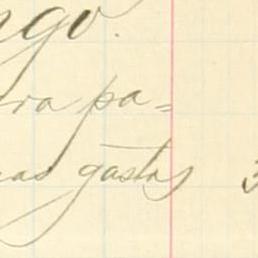 ngo.
ra pa=
nas gastos 3